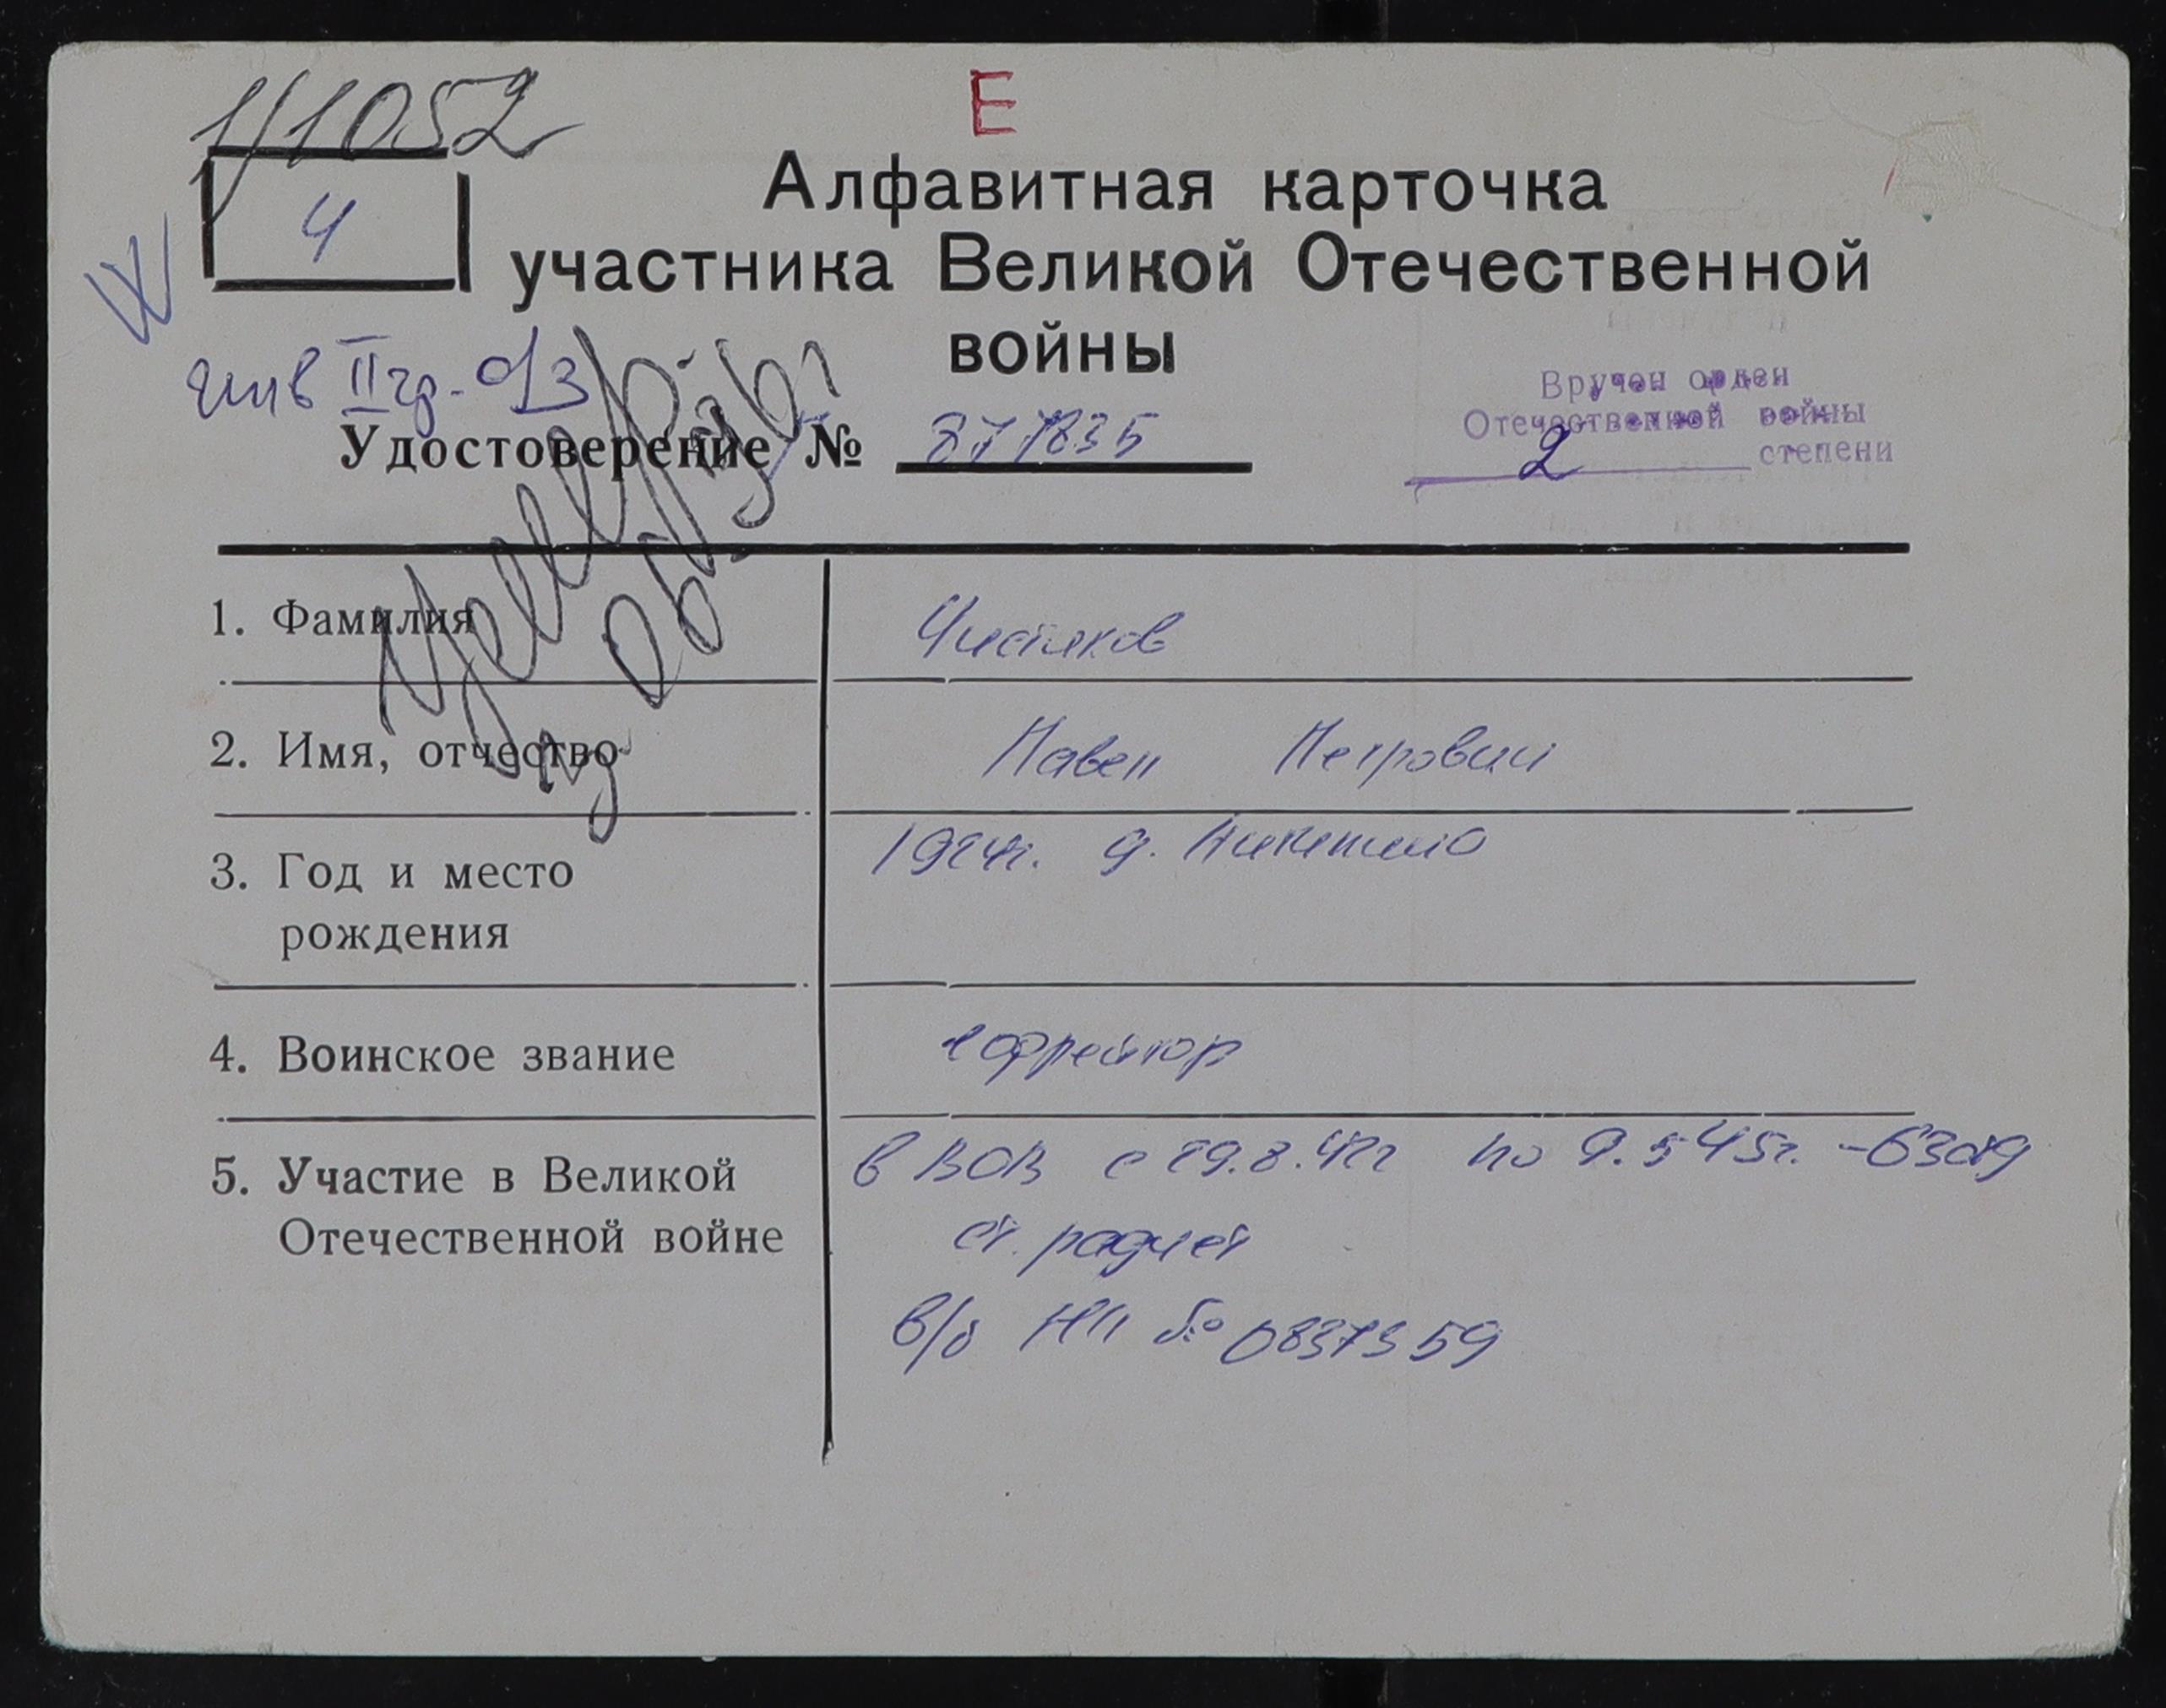 1/1052
Е
Алфавитная карточка
4
участника Великой Отечественной
войны
инв II гр. о/з
Вручен орден
Отечественной войны
2 степени
Удостоверение № 877835
1. Фамилия Чистяков
2. Имя, отчество Павел Петрович
3. Год и место 1924г. д.
рождения
4. Воинское звание ефрейтор
5. Участие в Великой в ВОВ с 29.8.42г по 9.5.45г. -630
Отечественной войне ст.
в/б НП № 0837359